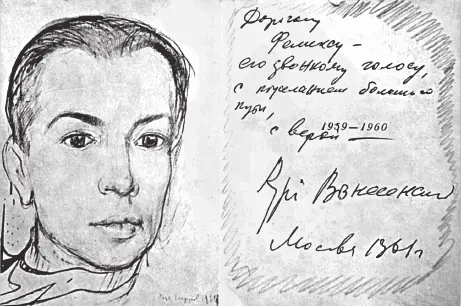 Дорогому
Феликсу –
его звонкому голосу,
с пожеланием большого
пути,
с верой 1959—1960
Вознесенский
Москва 1961г